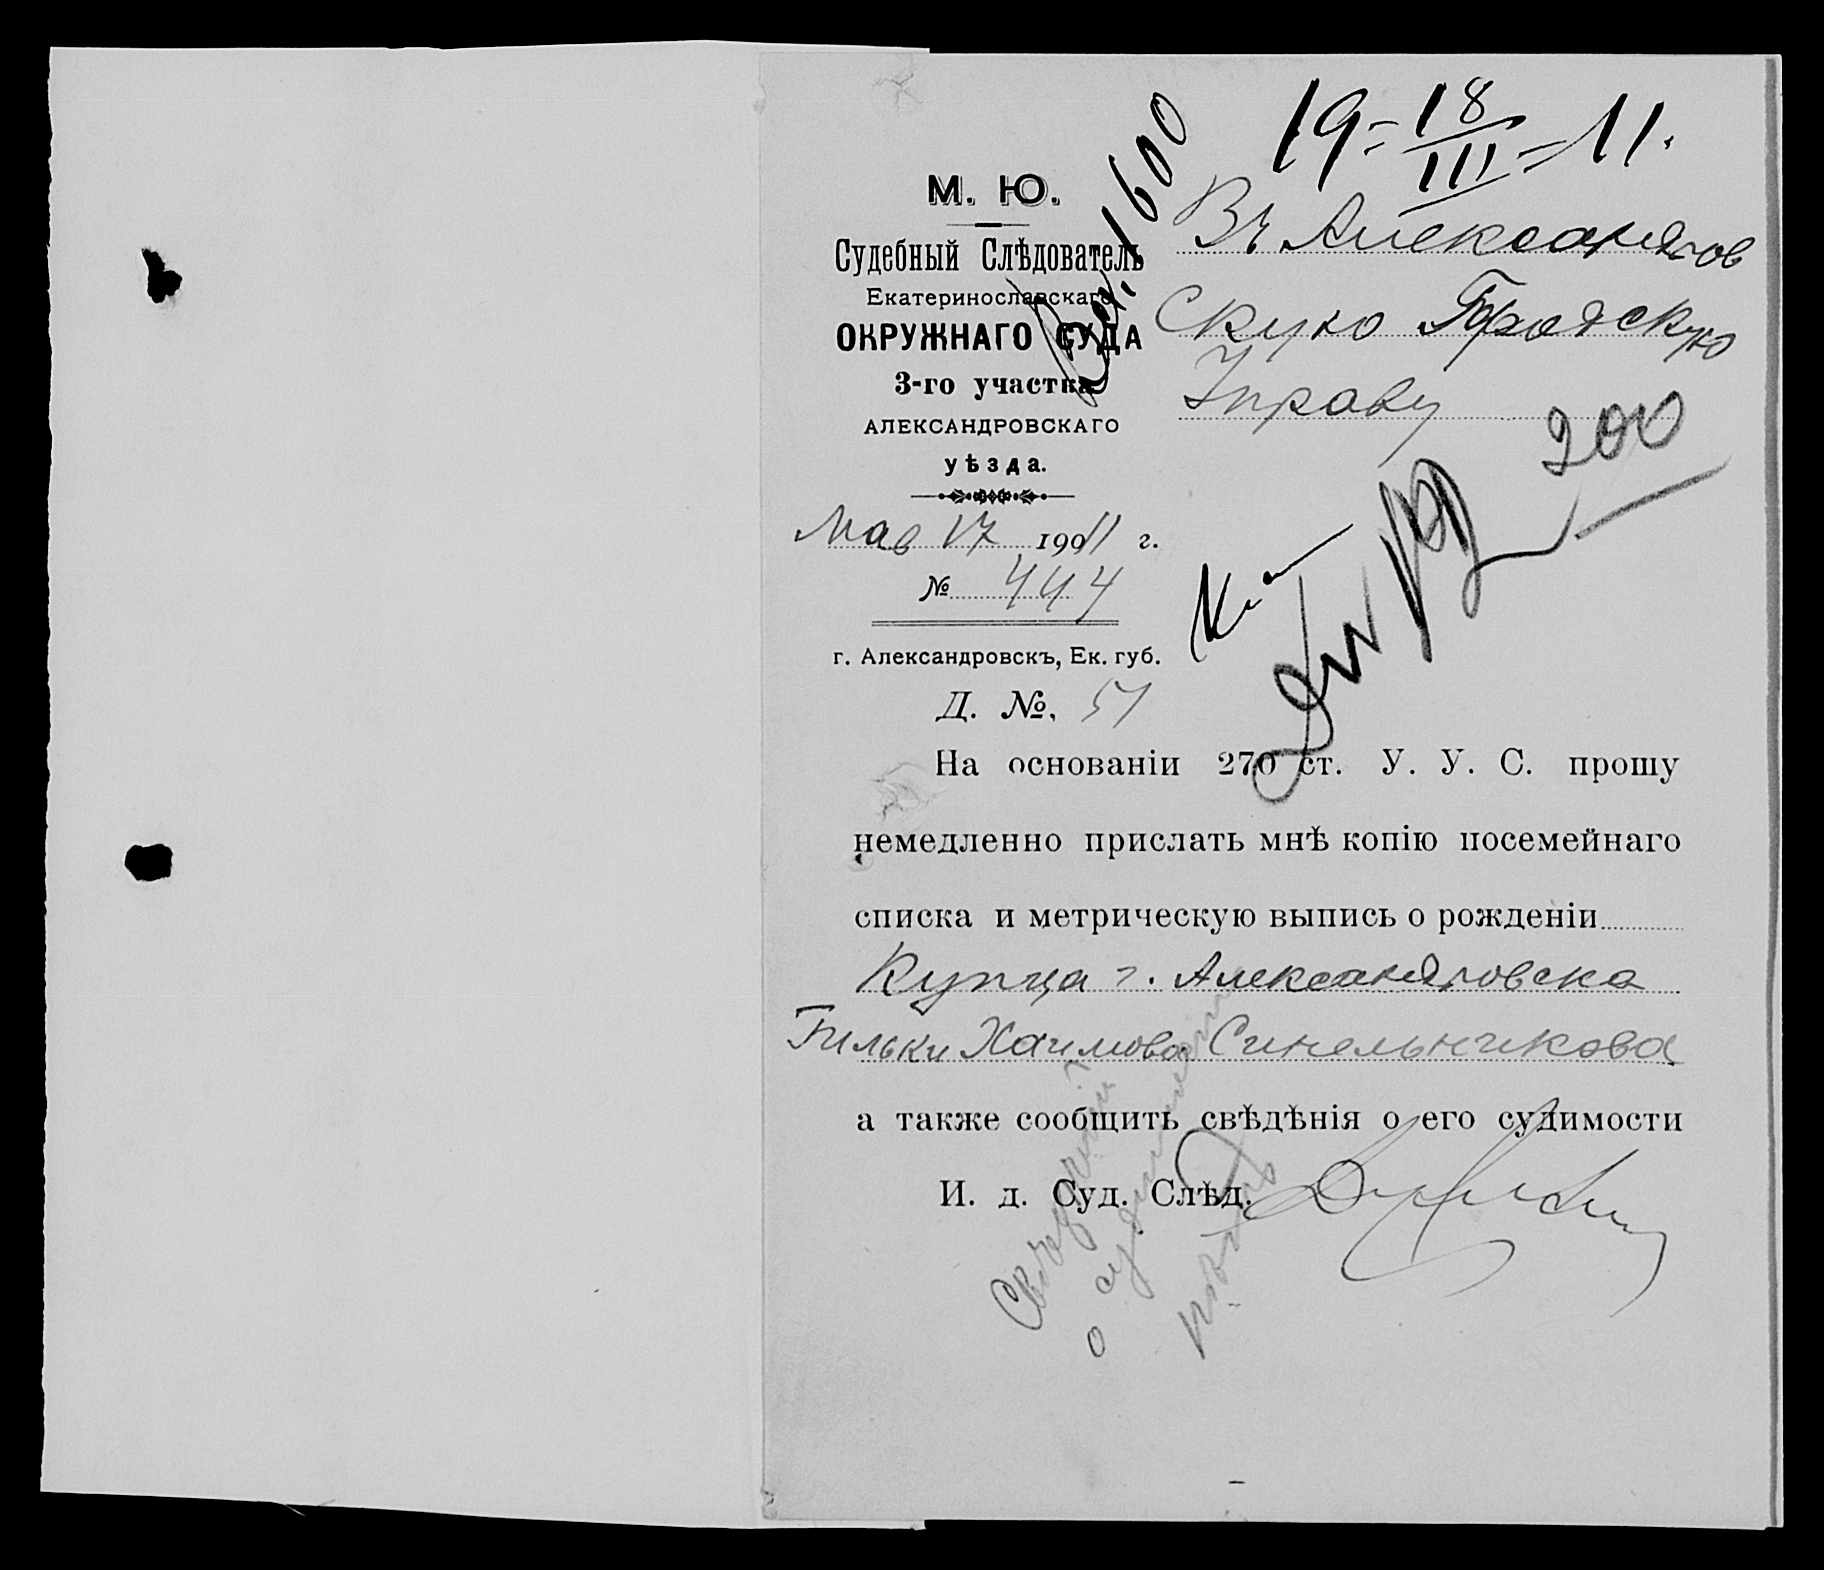 19 = 18/III = 11.
Вх. 1600
М. Ю.
Судебный Слѣдователь
Екатеринославскаго
ОКРУЖНАГО СУДА
3-го участка
АЛЕКСАНДРОВСКАГО
уѣзда.
Въ Александров
скую Городскую
Управу
200
17 1911 г.
№ 444
г. Александровскъ, Ек. губ.
Д. №. 51
На основаніи 270 ст. У. У. С. прошу
немедленно прислать мнѣ копію посемейнаго
списка и метрическую выпись о рожденіи
Купца г. Александровска
Хаимова Синельникова
а также сообщить свѣдѣнія о его судимости
И. д. Суд. Слѣд.
о судимости